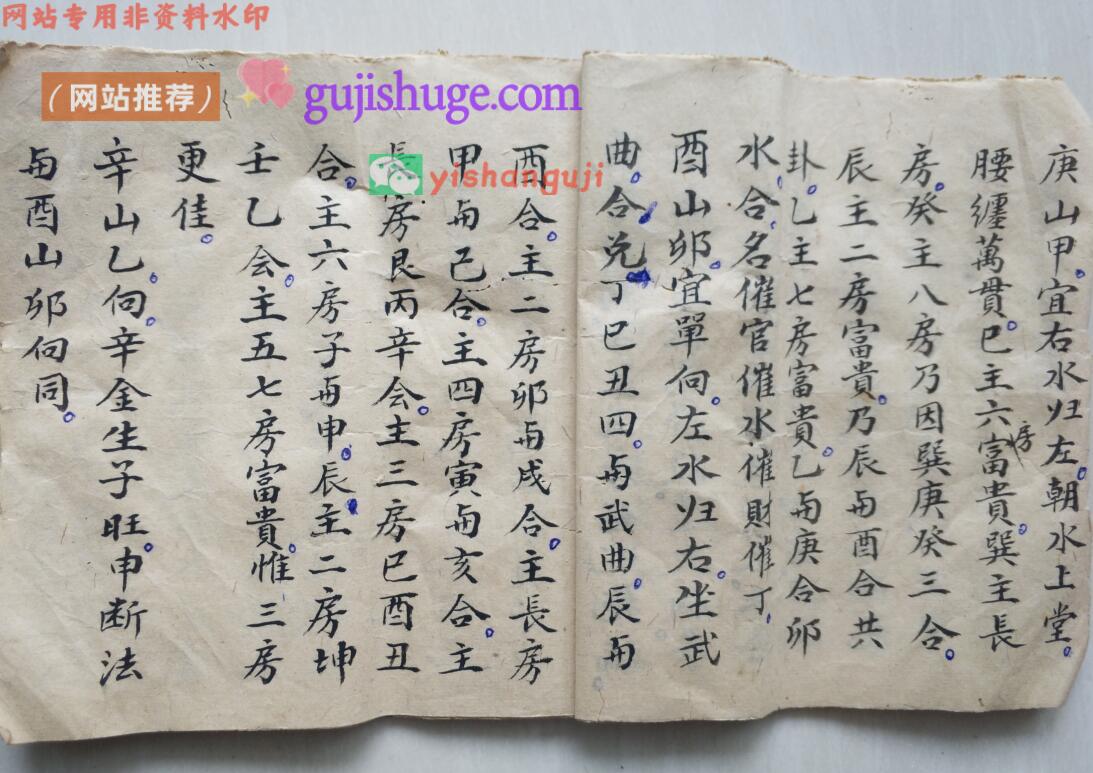 网站专用非资料水印
（网站推荐）
gujishuge.com
yishanguji
庚山甲。宜右水归左。朝水上堂。
腰纒萬貫。巳主六房富貴。巽主長
房。癸主八房乃因巽庚癸三合。
辰主二房富貴。乃辰与酉合共
卦。乙主七房富貴。乙与庚合卯
水。合名催官催水催財催丁。
酉山卯。宜單向。左水归右。坐武
曲。合兑丁巳丑四。与武曲。辰与
酉合。主二房卯与戌合。主長房
甲与己合。主四房寅与亥合。主
長房艮丙辛会。主三房巳酉丑
合。主六房子与申。辰。主二房坤
壬乙会。主五七房富貴。惟三房
更佳。
辛山乙。向。辛金生子旺。申断法
与酉山卯向同。